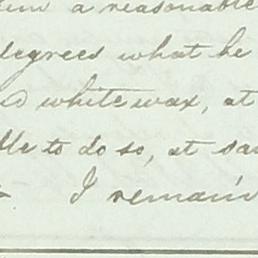 him a reasonable
degrees what he
white wax, at
to do so, at
I remain